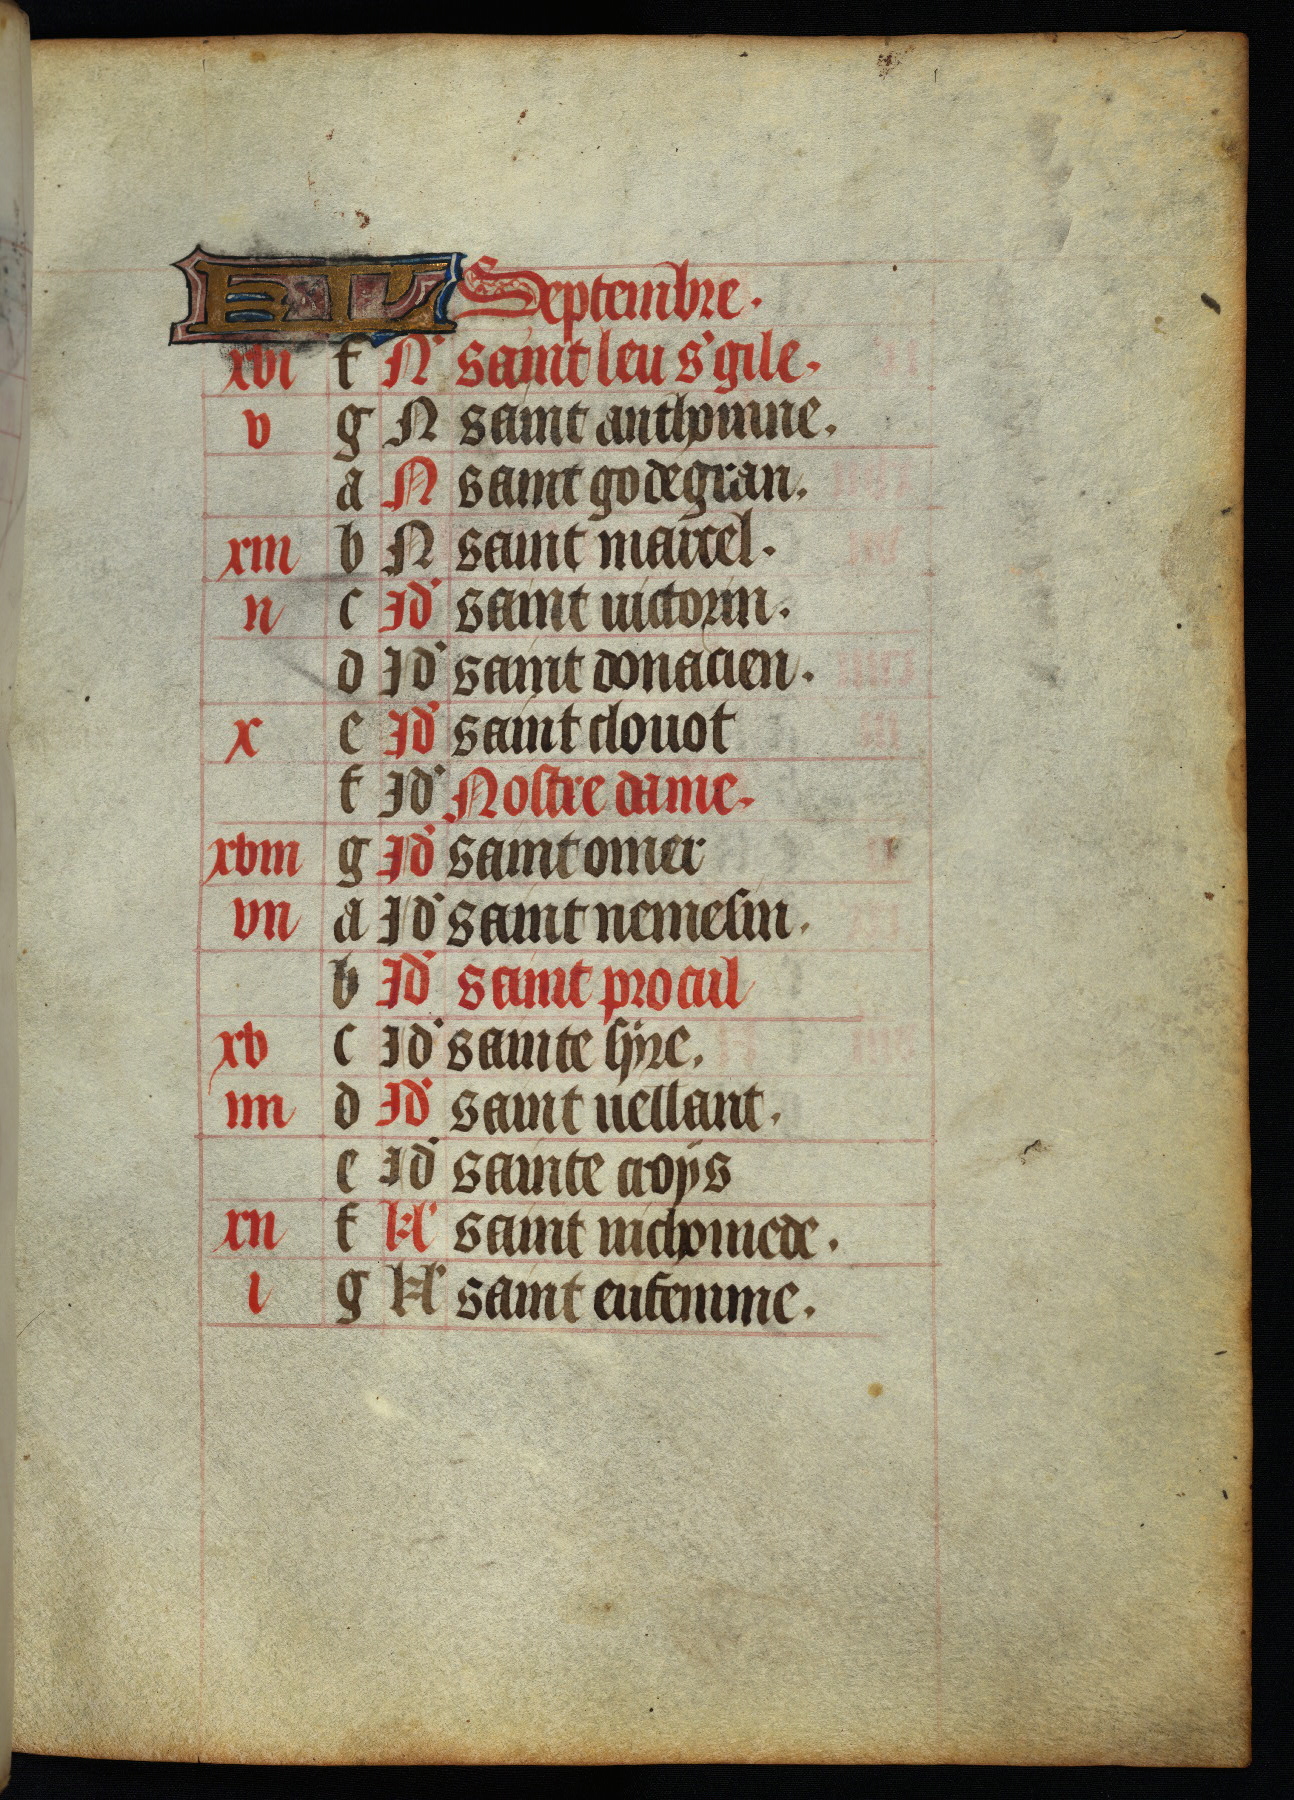 KL Septembre.
xvi f N saint leu s' gile.
v g N saint anthoinne.
a N saint godegran.
xiii b N saint marcel.
ii c Id' saint victorin.
d Id' saint donacien.
x e Id' saint clouot
f Id' Nostre dame.
xviii g Id' saint omer
vii a Id' saint nemesin.
b Id' saint procul
xv c Id' sainte syre.
iiii d Id' saint vellant.
e Id' sainte croys
xii f kl' saint nichomede.
i g kl' saint eufemme.